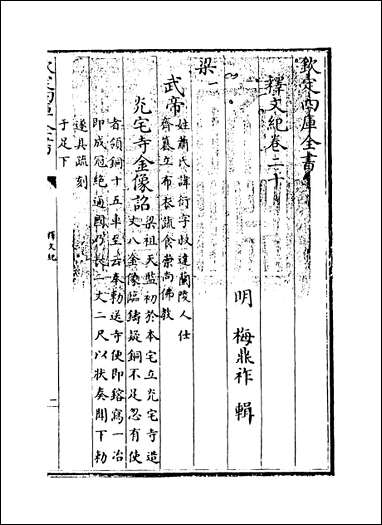 欽定四庫全書
釋文紀卷二十
明 梅鼎祚 輯
梁一
武帝
姓蕭氏諱衍字叔達蘭陵人仕
齊篡立布衣蔬食崇尚佛教
光宅寺金像詔
梁祖天監初於本宅立光宅寺造
丈八金像臨鑄疑銅不足忽有使
者領銅十五車至云奉勅送寺使即鎔寫一冶
即成冠絶通國乃長二丈二尺以狀奏聞下勅
遂具疏刻
于足下
欽定四庫全書
釋文紀